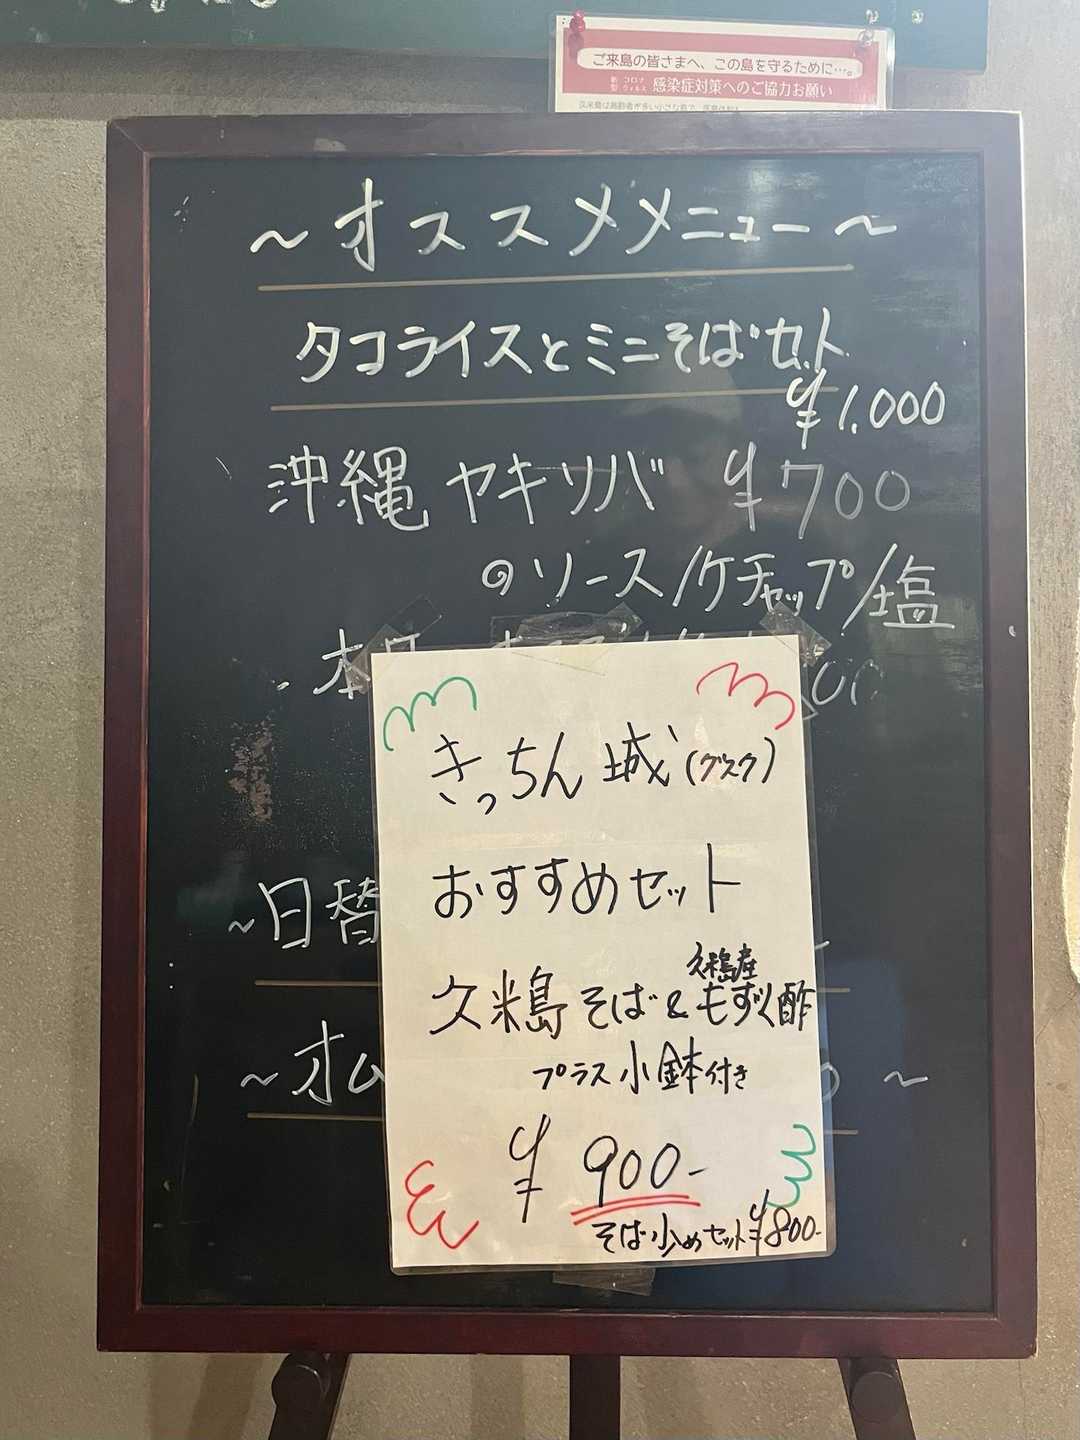 ご来島の皆さまへ、この島を守るために…。
新型コロナウィルス 感染症対策へのご協力お願い
～オススメメニュー～
タコライスとミニそばセット
¥1,000
沖縄ヤキソバ ¥700
のソース/ケチャップ/塩
きっちん城(グスク)
おすすめセット
久米島産
久米島そば&もずく酢
プラス小鉢付き
¥900-
そば少めセット¥800-
～日替
～オム
～